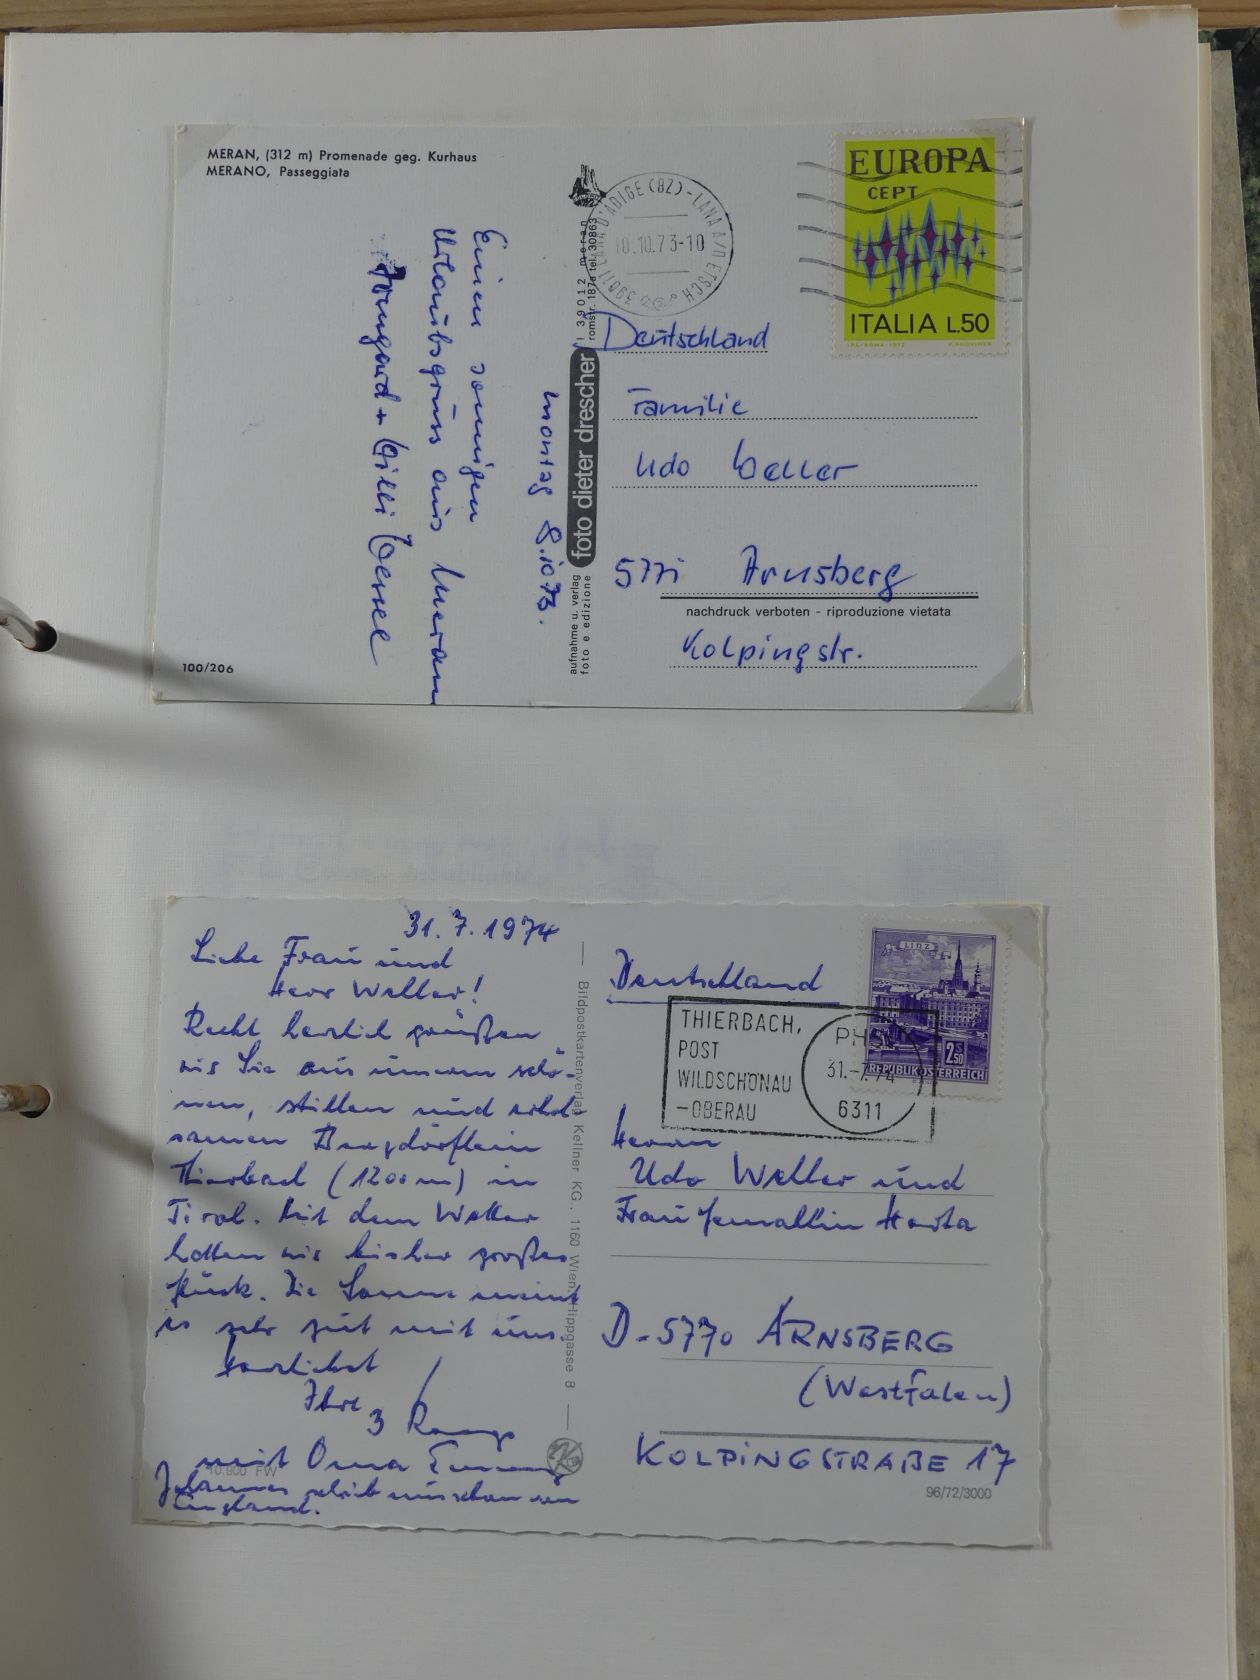 MERAN, (312 m) Promenade geg. Kurhaus
MERANO, Passeggiata
Montag 8.10.73.
Einen sonnigen
Urlaubsgruss aus Meran
Irmgard + Willi
100/206
I 39012 meran
romstr. 187a tel. 30863
foto dieter drescher
aufnahme u. verlag
foto e edizione
39011 LANA D'ADIGE (BZ) - LANA A/D ETSCH
10.10.73-10
EUROPA
CEPT
ITALIA L.50
Deutschland
Familie
Udo Weller
5771 Arnsberg
nachdruck verboten - riproduzione vietata
Kolpingstr.
31.7.1974
Liebe Frau und
Herr Weller!
Recht herzlich grüßen
wir Sie aus unserem schö-
nen, stillen und erhol-
samen Bergdörflein
Thierbach (1200 m) in
Tirol. Mit dem Wetter
hatten wir bisher großes
Glück. Die Sonne meint
es sehr gut mit uns.
Herzlichst
Ihre 3
mit Oma
Johannes schrieb uns schon von
England.
10.900 FW
Bildpostkartenverlag Kellner KG., 1160 Wien, Hippgasse 8
LINZ
2S50
REPUBLIK ÖSTERREICH
THIERBACH,
POST
WILDSCHÖNAU
-OBERAU
31.-7.74
6311
Deutschland
Herrn
Udo Weller und
Frau Gemahlin Herta
D-5770 ARNSBERG
(Westfalen)
KOLPINGSTRAßE 17
96/72/3000